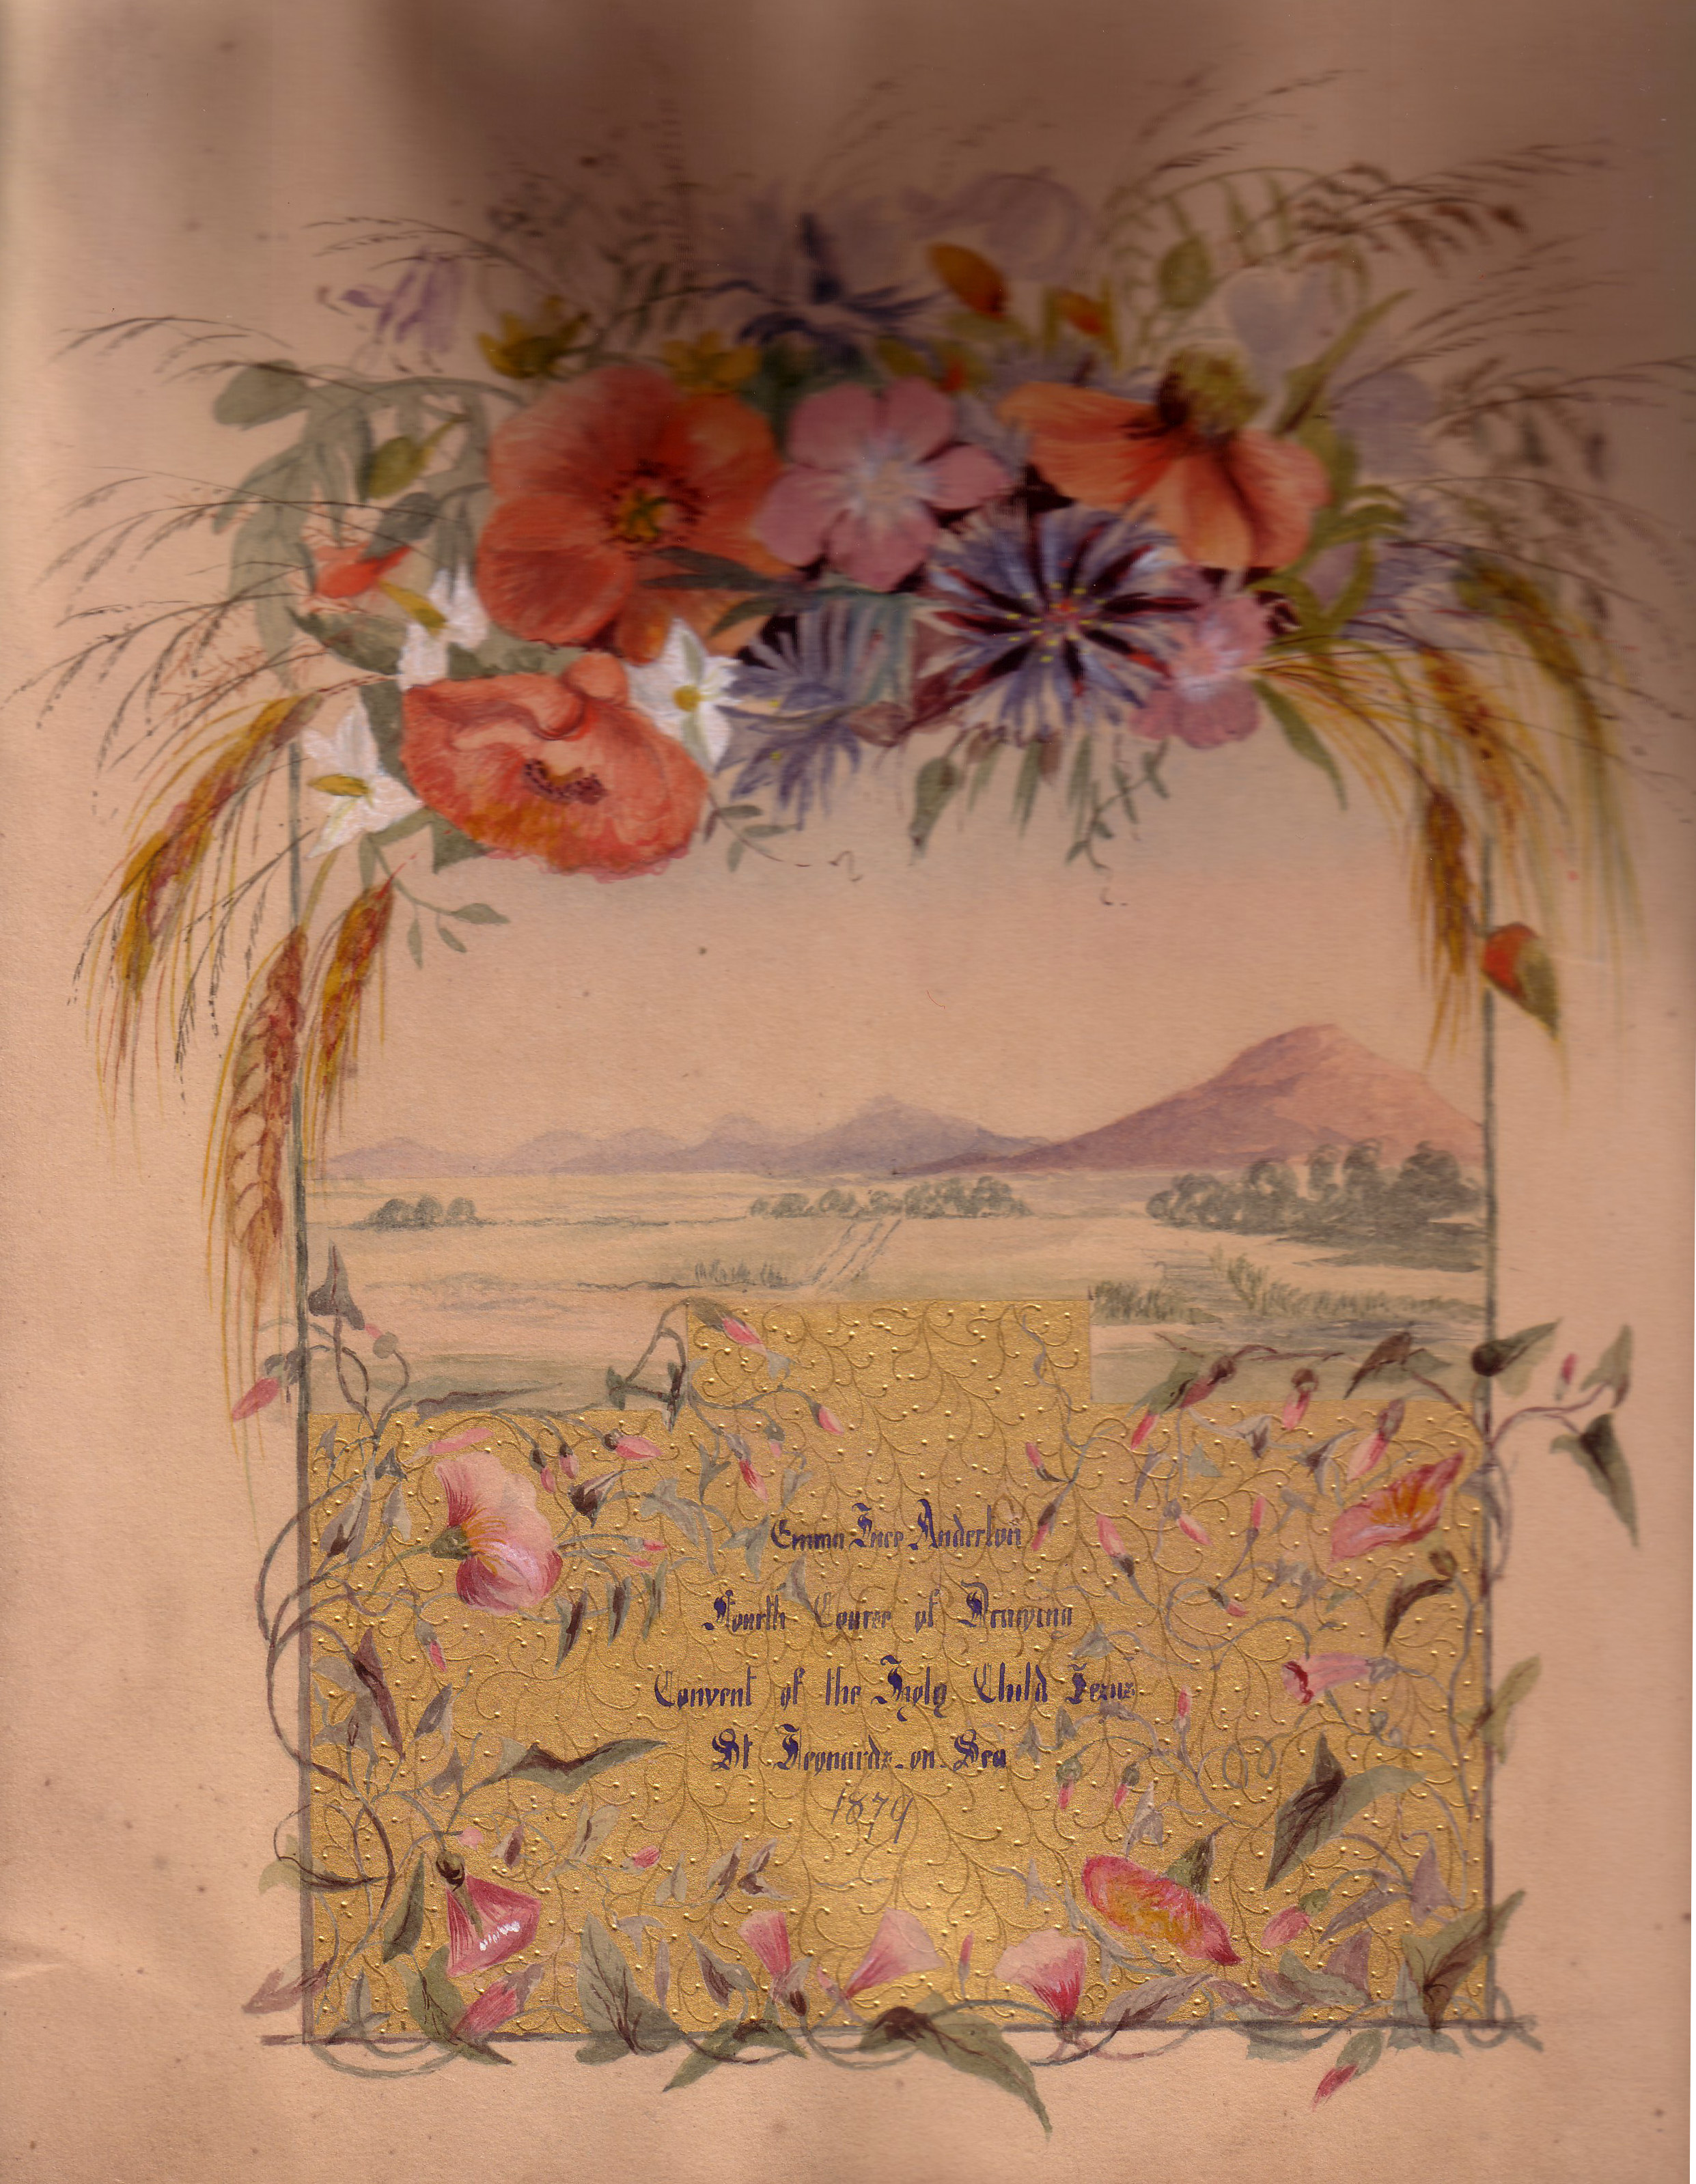 Emma Anderton
Fourth Course of Drawing
Convent of the Holy Child Jesus
St Leonards-on-Sea
1879